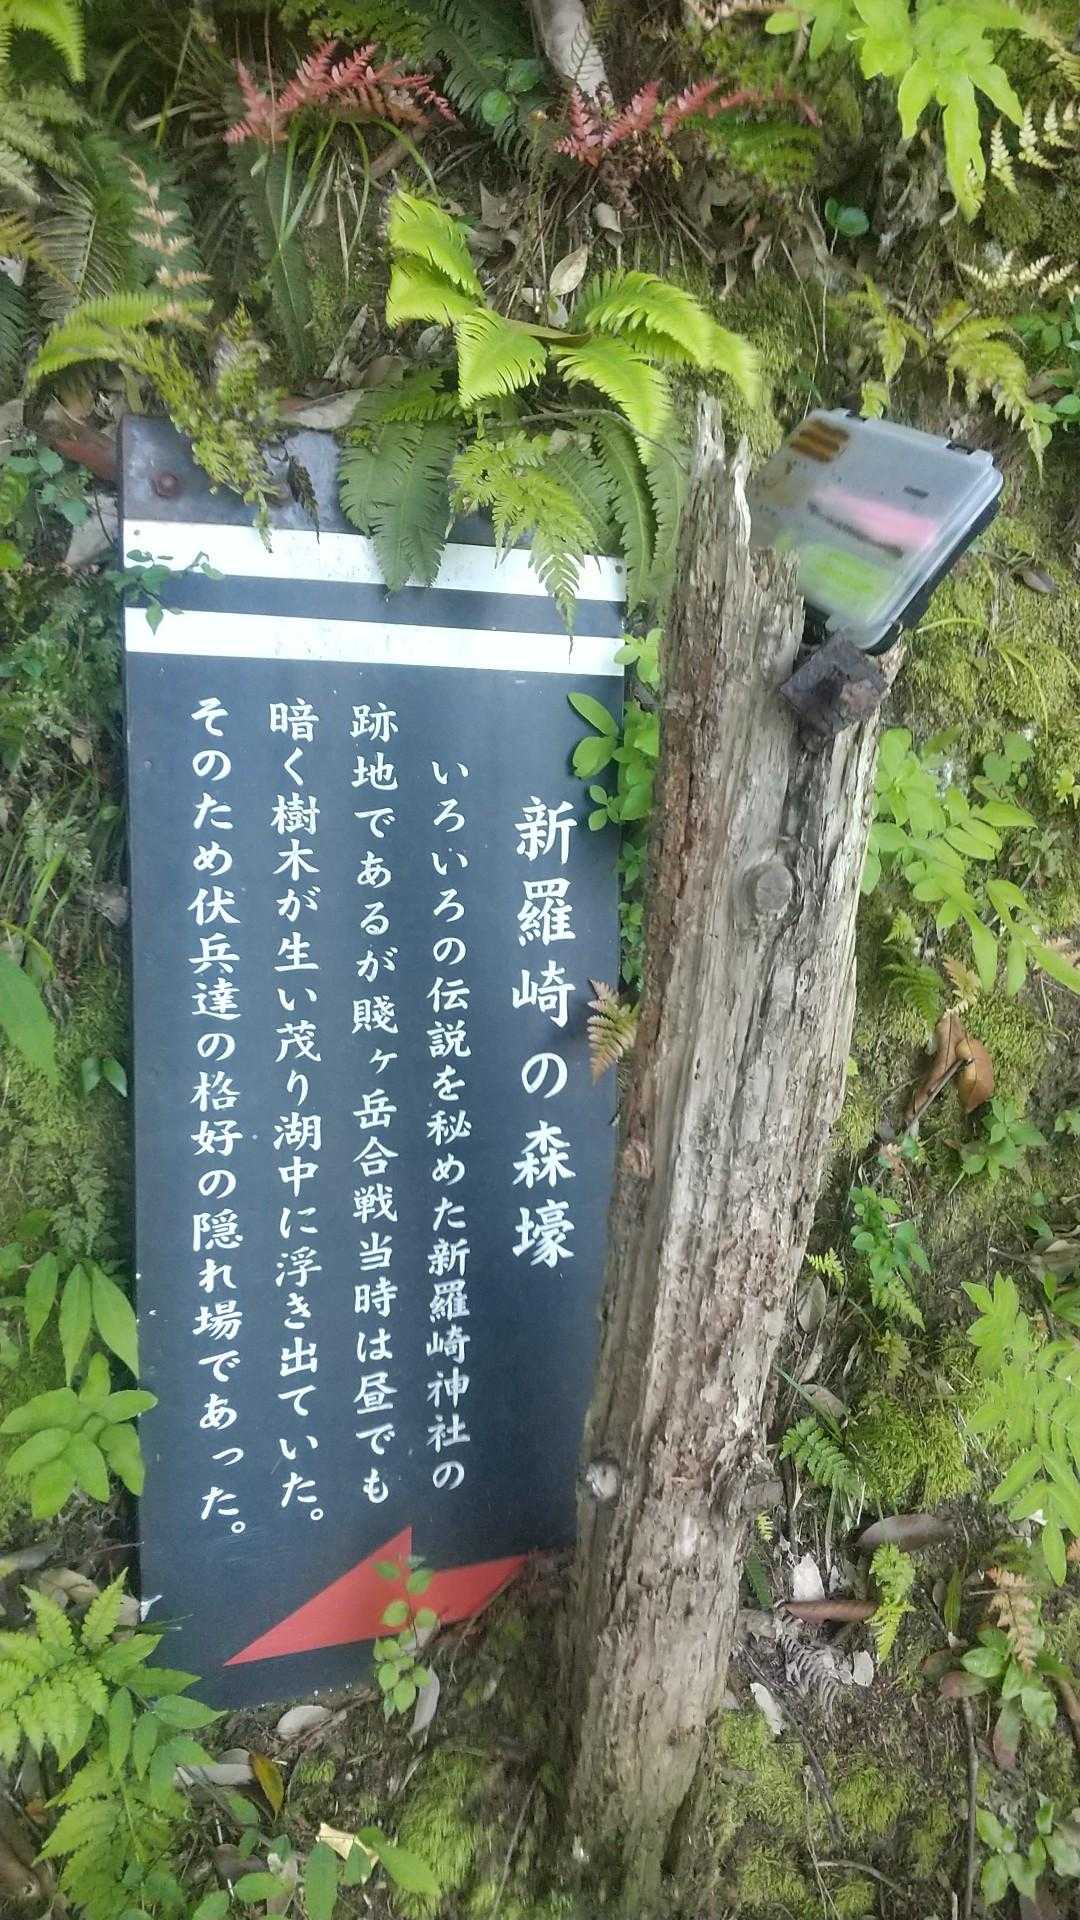 新羅崎の森壕
いろいろの伝説を秘めた新羅崎神社の
跡地であるが賤ヶ岳合戦当時は昼でも
暗く樹木が生い茂り湖中に浮き出ていた。
そのため伏兵達の格好の隠れ場であった。